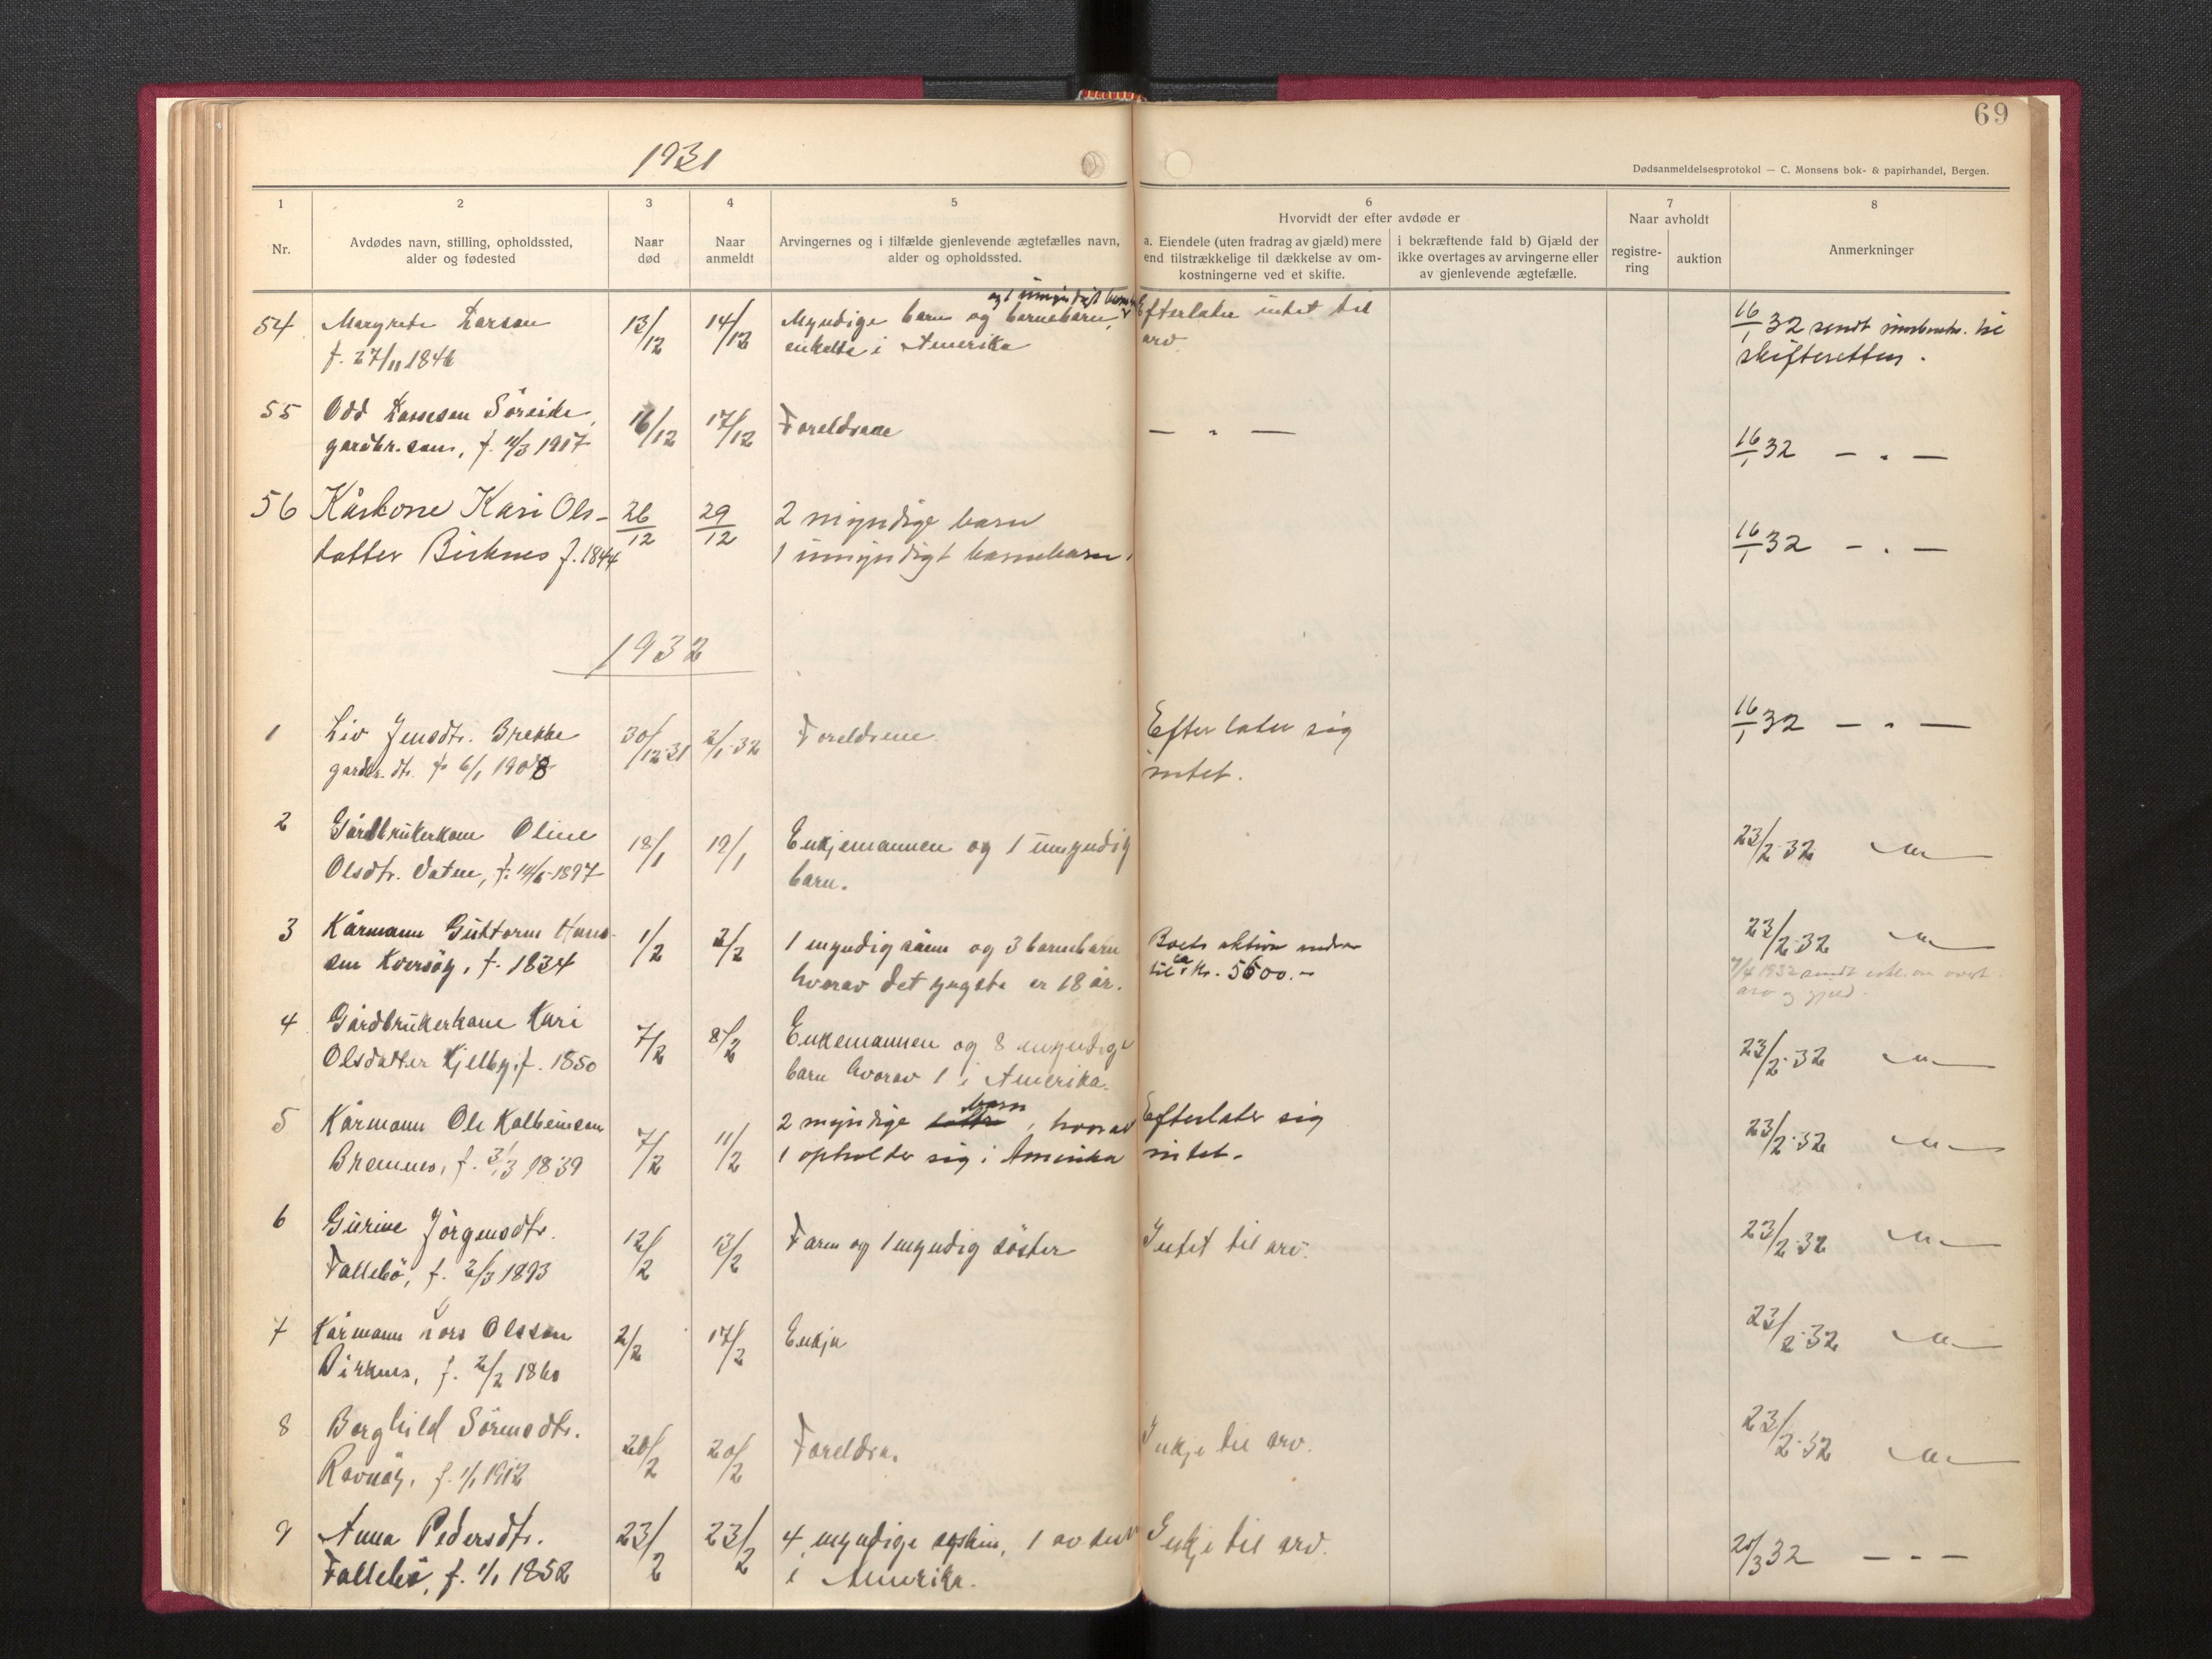 69
1931
Dødsanmeldelsesprotokol — C. Monsens bok- & papirhandel, Bergen.
1 2 3 4 5 6 7 8
Nr.
Avdødes navn, stilling, opholdssted,
alder og fødested
Naar
død
Naar
anmeldt
Arvingernes og i tilfælde gjenlevende ægtefælles navn,
alder og opholdssted.
Hvorvidt der efter avdøde er
a. Eiendele (uten fradrag av gjæld) mere
end tilstrækkelige til dækkelse av om-
kostningerne ved et skifte.
i bekræftende fald b) Gjæld der
ikke overtages av arvingerne eller
av gjenlevende ægtefælle.
Naar avholdt
registre-
ring
auktion
Anmerkninger
og 1 umyndigt barneb.
54 Margrete Larsen 13/12 14/12 Myndige barn og barnebarn, Efterlater intet til 16/1 32 sendt til
f. 27/11 1846 enkelte i Amerika arv. skifteretten.
55 Odd Lassesen Söreide, 16/12 17/12 Foreldrene — " — 16/1 32 — " —
gardbr. sönn, f. 11/3 1917
56 Kårkone Kari Ols- 26/12 29/12 2 myndige barn 16/1 32 — " —
datter Birknes f. 1844 1 umyndigt barnebarn.
1932
1 Liv Jensdtr. Brekke 30/12-31 2/1-32 Foreldrene. Efterlater sig 16/1 32 — " —
gardbr. dtr. f. 6/1 1908 intet.
2 Gårdbrukerkone Oline 18/1 19/1 Enkjemannen og 1 umyndig 23/2-32 — " —
Olsdtr. Vatne, f. 14/6-1897 barn.
3 Kårmann Guttorm Hans- 1/2 2/2 1 myndig sönn og 3 barnebarn Boets aktiva 23/2-32 — " —
sen Kversöy, f. 1834 hvorav det yngste er 18 år. til ca kr. 5600.- 7/4 1932 sendt
arv og gjeld.
4 Gårdbrukerkone Kari 7/2 8/2 Enkemannen og 8 myndige 23/2-32 — " —
Olsdatter Kjelby, f. 1850 barn hvorav 1 i Amerika.
5 Kårmann Ole Kolbeinsen 7/2 11/2 2 myndige barn, hvorav Efterlater sig 23/2-32 — " —
Bremnes, f. 3/3 1839 1 opholder sig i Amerika intet.
6 Gurine Jörgensdtr. 12/2 13/2 Faren og 1 myndig söster Intet til arv. 23/2-32 — " —
Tallebö, f. 2/3 1893
7 Kårmann Lars Olsson 2/2 17/2 Enkja 23/2-32 — " —
Birknes, f. 2/2 1860
8 Borghild Sörensdtr. 20/2 20/2 Foreldra. Inkje til arv. 23/2-32 — " —
Ravnöy, f. 1/1 1912
9 Anna Pedersdtr. 23/2 23/2 4 myndige syskin, 1 av dem Inkje til arv. 20/3 32 — " —
Tallebö, f. 1/1 1852 i Amerika.